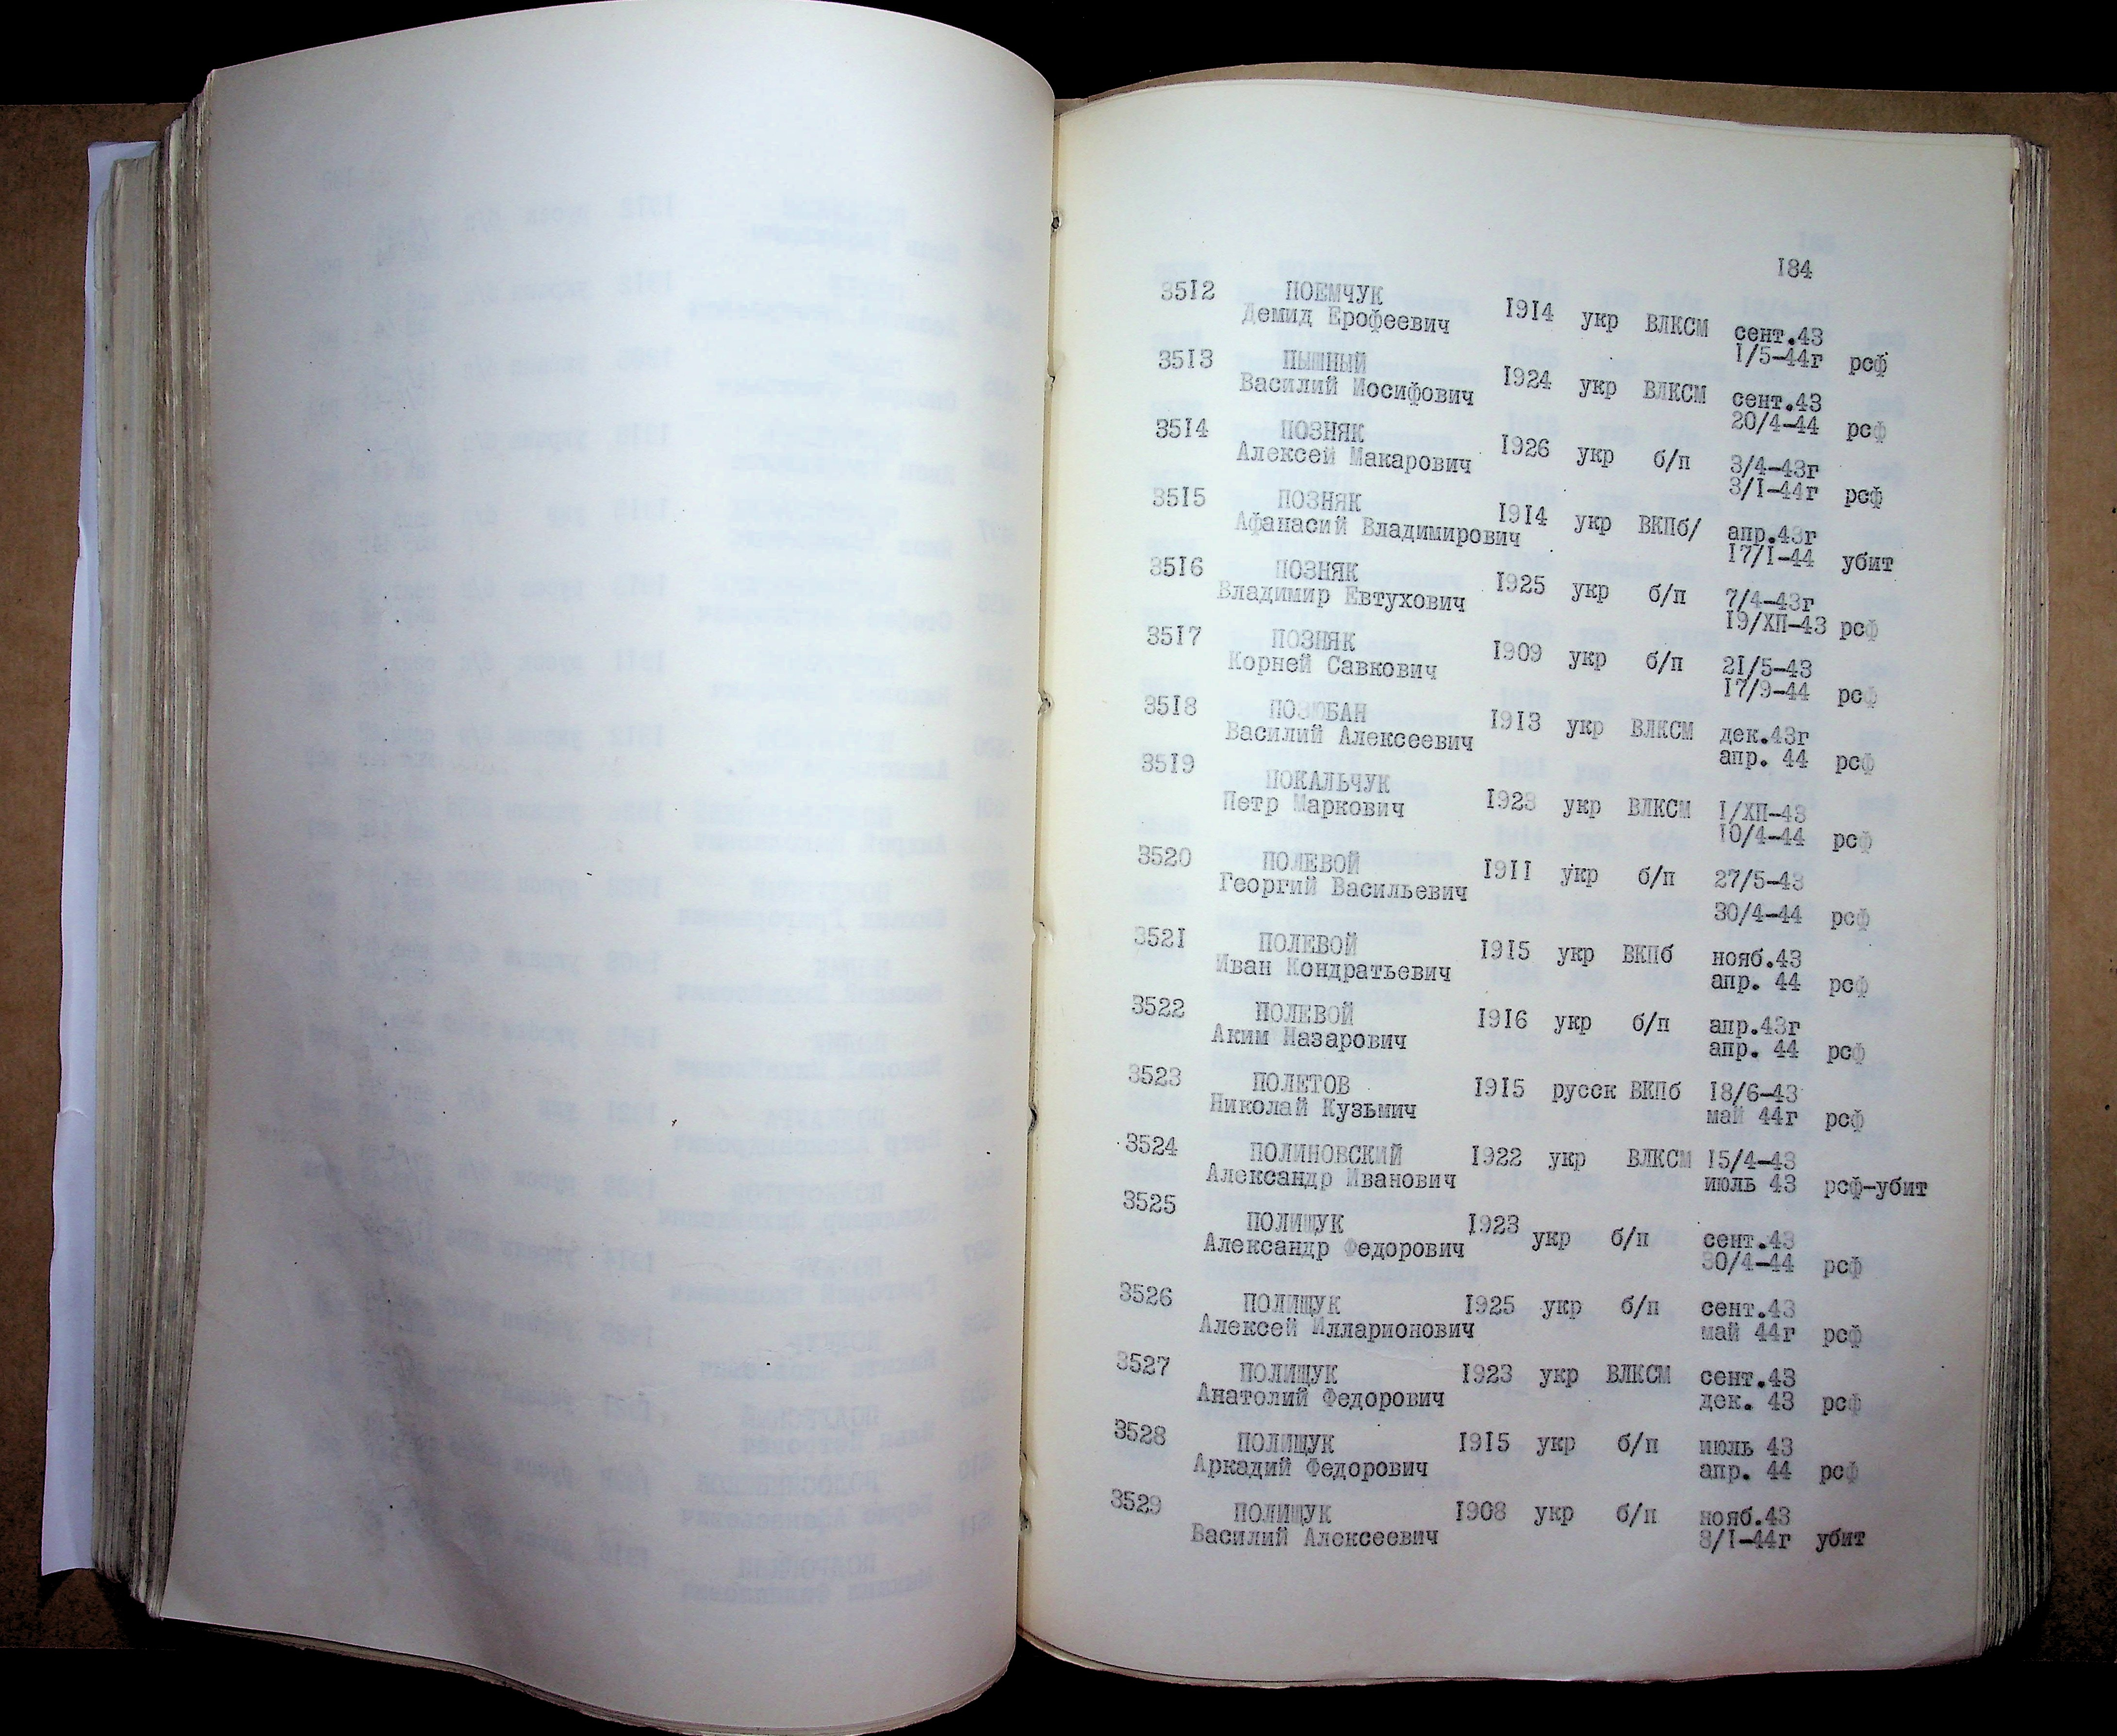 184
3512 ПОЕМЧУК
Демид Ерофеевич 1914 укр ВЛКСМ сент.43
1/5-44г рсф
3513 ПЫШНЫЙ
Василий Иосифович 1924 укр ВЛКСМ сент.43
20/4-44 рсф
3514 ПОЗНЯК
Алексей Макарович 1926 укр б/п 3/4-43г
3/1-44г рсф
3515 ПОЗНЯК
Афанасий Владимирович 1914 укр ВКПб/ апр.43г
17/1-44 убит
3516 ПОЗНЯК
Владимир Евтухович 1925 укр б/п 7/4-43г
19/ХП-43 рсф
3517 ПОЗНЯК
Корней Савкович 1909 укр б/п 21/5-43
17/9-44 рсф
3518 ПОЗЮБАН
Василий Алексеевич 1913 укр ВЛКСМ дек.43г
апр. 44 рсф
3519 ПОКАЛЬЧУК
Петр Маркович 1923 укр ВЛКСМ 1/ХП-43
10/4-44 рсф
3520 ПОЛЕВОЙ
Георгий Васильевич 1911 укр б/п 27/5-43
30/4-44 рсф
3521 ПОЛЕВОЙ 1915 укр ВКПб нояб.43
Иван Кондратьевич апр. 44 рсф
3522 ПОЛЕВОЙ 1916 укр б/п апр.43г
Аким Назарович апр. 44 рсф
3523 ПОЛЕТОВ 1915 русск ВКПб 18/6-43
Николай Кузьмич май 44г рсф
3524 ПОЛИНОВСКИЙ 1922 укр ВЛКСМ 15/4-43
Александр Иванович июль 43 рсф-убит
3525 ПОЛИЩУК 1923 укр б/п сент.43
Александр Федорович 30/4-44 рсф
3526 ПОЛИЩУК 1925 укр б/п сент.43
Алексей Илларионович май 44г рсф
3527 ПОЛИЩУК 1923 укр ВЛКСМ сент.43
Анатолий Федорович дек. 43 рсф
3528 ПОЛИЩУК 1915 укр б/п июль 43
Аркадий Федорович апр. 44 рсф
3529 ПОЛИЩУК 1908 укр б/п нояб.43
Василий Алексеевич 3/1-44г убит